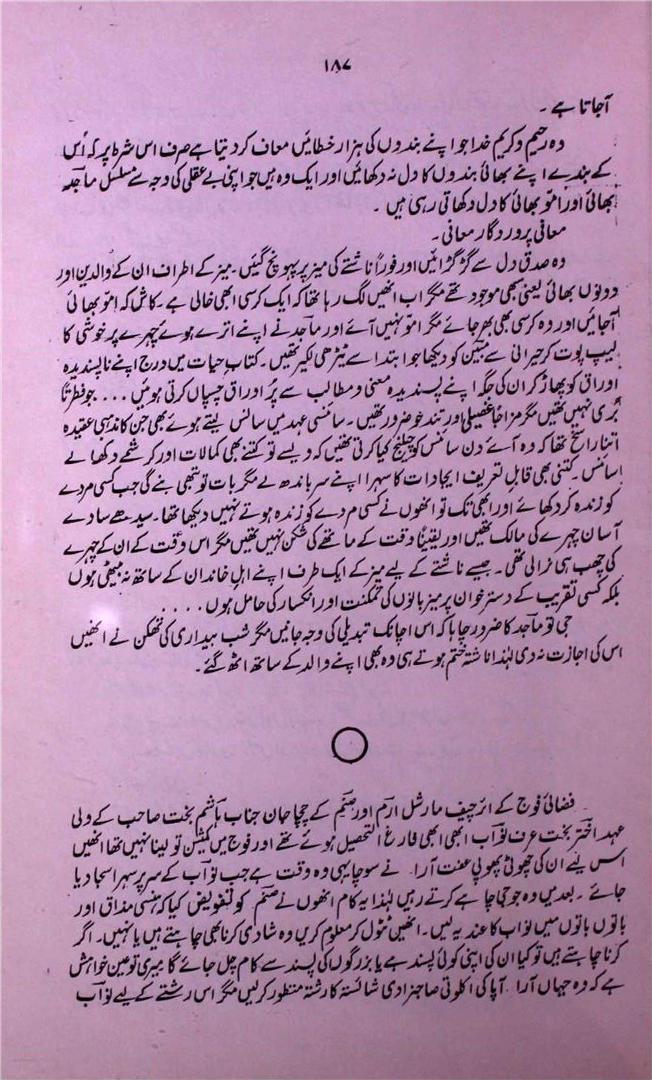 ۱۸۷
آجاتا ہے۔
وہ رحیم و کریم خدا جو اپنے بندوں کی ہزار خطائیں معاف کر دیتا ہے صرف اس شرط پر کہ اُس
کے بندے اپنے بھائی بندوں کا دل نہ دکھائیں اور ایک وہ ہیں جو اپنی بے عقلی کی وجہ سے مسلسل ماجد
بھائی اور امّو بھائی کا دل دکھاتی رہی ہیں۔
معافی پروردگار معافی۔
وہ صدق دل سے گڑگڑائیں اور فوراً ناشتے کی میز پر پہونچ گئیں۔ میز کے اطراف ان کے والدین اور
دونوں بھائی یعنی سبھی موجود تھے مگر اب انھیں لگ رہا تھا کہ ایک کرسی ابھی خالی ہے۔ کاش کہ امّو بھائی
آجائیں اور وہ کرسی بھی بھر جائے مگر امّو نہیں آئے اور ماجد نے اپنے اترے ہوئے چہرے پر خوشی کا
لیپ پوت کر حیرانی سے مبین کو دیکھا جو ابتدا سے ٹیڑھی لکیر تھیں۔ کتاب حیات میں درج اپنے ناپسندیدہ
اوراق کو پھاڑ کر ان کی جگہ اپنے پسندیدہ معنی و مطالب سے پُر اوراق چسپاں کرتی ہوئیں .... جو فطرتاً
بُری نہیں تھیں مگر مزاجاً غصیلی اور تند خو ضرور تھیں۔ سائنسی عہد میں سانس لیتے ہوئے بھی جن کا مذہبی عقیدہ
اتنا راسخ تھا کہ وہ آئے دن سائنس کو چیلنج کیا کرتی تھیں کہ ویسے تو کتنے بھی کمالات اور کرشمے دکھا لے
سائنس۔ کتنی بھی قابلِ تعریف ایجادات کا سہرا اپنے سر باندھ لے مگر بات تو تبھی بنے گی جب کسی مردے
کو زندہ کر دکھائے اور ابھی تک تو انھوں نے کسی مردے کو زندہ ہوتے نہیں دیکھا تھا۔ سیدھے سادے
آسان چہرے کی مالک تھیں اور یقیناً وقت کے ماتھے کی شکن نہیں تھیں مگر اس وقت کے ان کے چہرے
کی چھب ہی نرالی تھی۔ جیسے ناشتے کے لیے میز کے ایک طرف اپنے اہلِ خاندان کے ساتھ نہ بیٹھی ہوں
بلکہ کسی تقریب کے دسترخوان پر میزبانوں کی تمکنت اور انکسار کی حامل ہوں....
جی تو ماجد کا ضرور چاہا کہ اس اچانک تبدیلی کی وجہ جانیں مگر شب بیداری کی تھکن نے انھیں
اس کی اجازت نہ دی لہٰذا ناشتہ ختم ہوتے ہی وہ بھی اپنے والد کے ساتھ اٹھ گئے۔
فضائی فوج کے ائر چیف مارشل ارم اور صنم کے چچا جان جناب ہاشم بخت صاحب کے ولی
عہد اختر بخت عرف نواب ابھی ابھی فارغ التحصیل ہوئے تھے اور فوج میں کمیشن تو لینا نہیں تھا انھیں
اس لیے ان کی چھوٹی پھوپی عفت آرا نے سوچا یہی وہ وقت ہے جب نواب کے سر پر سہرا سجا دیا
جائے۔ بعد میں وہ جو جی چاہے کرتے رہیں لہٰذا یہ کام انھوں نے صنم کو تفویض کیا کہ ہنسی مذاق اور
باتوں باتوں میں نواب کا عندیہ لیں۔ انھیں ٹٹول کر معلوم کریں وہ شادی کرنا بھی چاہتے ہیں یا نہیں۔ اگر
کرنا چاہتے ہیں تو کیا ان کی اپنی کوئی پسند ہے یا بزرگوں کی پسند سے کام چل جائے گا میری تو عین خواہش
ہے کہ وہ جہاں آرا آپا کی اکلوتی صاحبزادی شائستہ کا رشتہ منظور کر لیں مگر اس رشتے کے لیے نواب